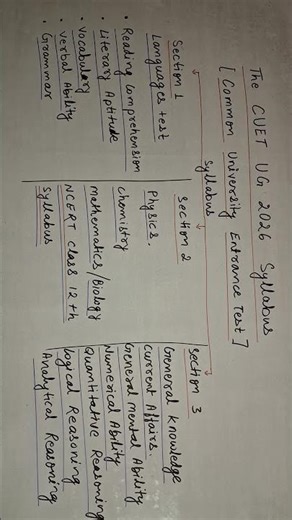 The CUET UG 2026 Syllabus
[Common University Entrance Test]
Syllabus
Section 1
Languages test
• Reading Comprehension
• Literary Aptitude
• Vocabulary
• Verbal Ability
• Grammar
Section 2
Physics.
Chemistry
Mathematics/Biology
NCERT Class 12th
Syllabus
Section 3
General Knowledge
Current Affairs.
General Mental Ability
Numerical Ability
Quantitative Reasoning
Logical Reasoning
Analytical Reasoning